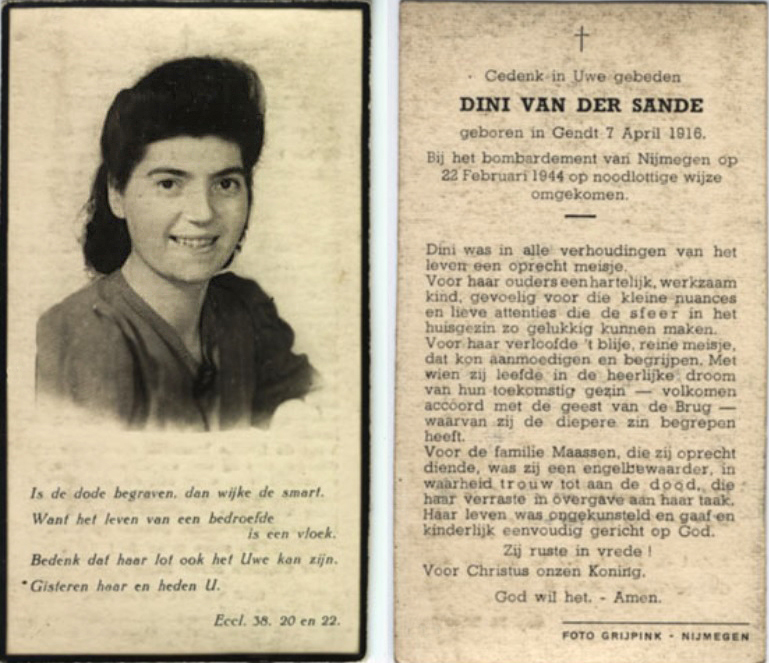 Is de dode begraven, dan wijke de smart.
Want het leven van een bedroefde
is een vloek.
Bedenk dat haar lot ook het Uwe kan zijn.
Gisteren haar en heden U.
Eccl. 38. 20 en 22.
Gedenk in Uwe gebeden
DINI VAN DER SANDE
geboren in Gendt 7 April 1916.
Bij het bombardement van Nijmegen op
22 Februari 1944 op noodlottige wijze
omgekomen.
Dini was in alle verhoudingen van het
leven een oprecht meisje.
Voor haar ouders een hartelijk, werkzaam
kind, gevoelig voor die kleine nuances
en lieve attenties die de sfeer in het
huisgezin zo gelukkig kunnen maken.
Voor haar verloofde 't blije, reine meisje,
dat kon aanmoedigen en begrijpen. Met
wien zij leefde in de heerlijke droom
van hun toekomstig gezin — volkomen
accoord met de geest van de Brug —
waarvan zij de diepere zin begrepen
heeft.
Voor de familie Maassen, die zij oprecht
diende, was zij een engelbewaarder, in
waarheid trouw tot aan de dood, die
haar verraste in overgave aan haar taak.
Haar leven was ongekunsteld en gaaf en
kinderlijk eenvoudig gericht op God.
Zij ruste in vrede !
Voor Christus onzen Koning.
God wil het. - Amen.
FOTO GRIJPINK - NIJMEGEN